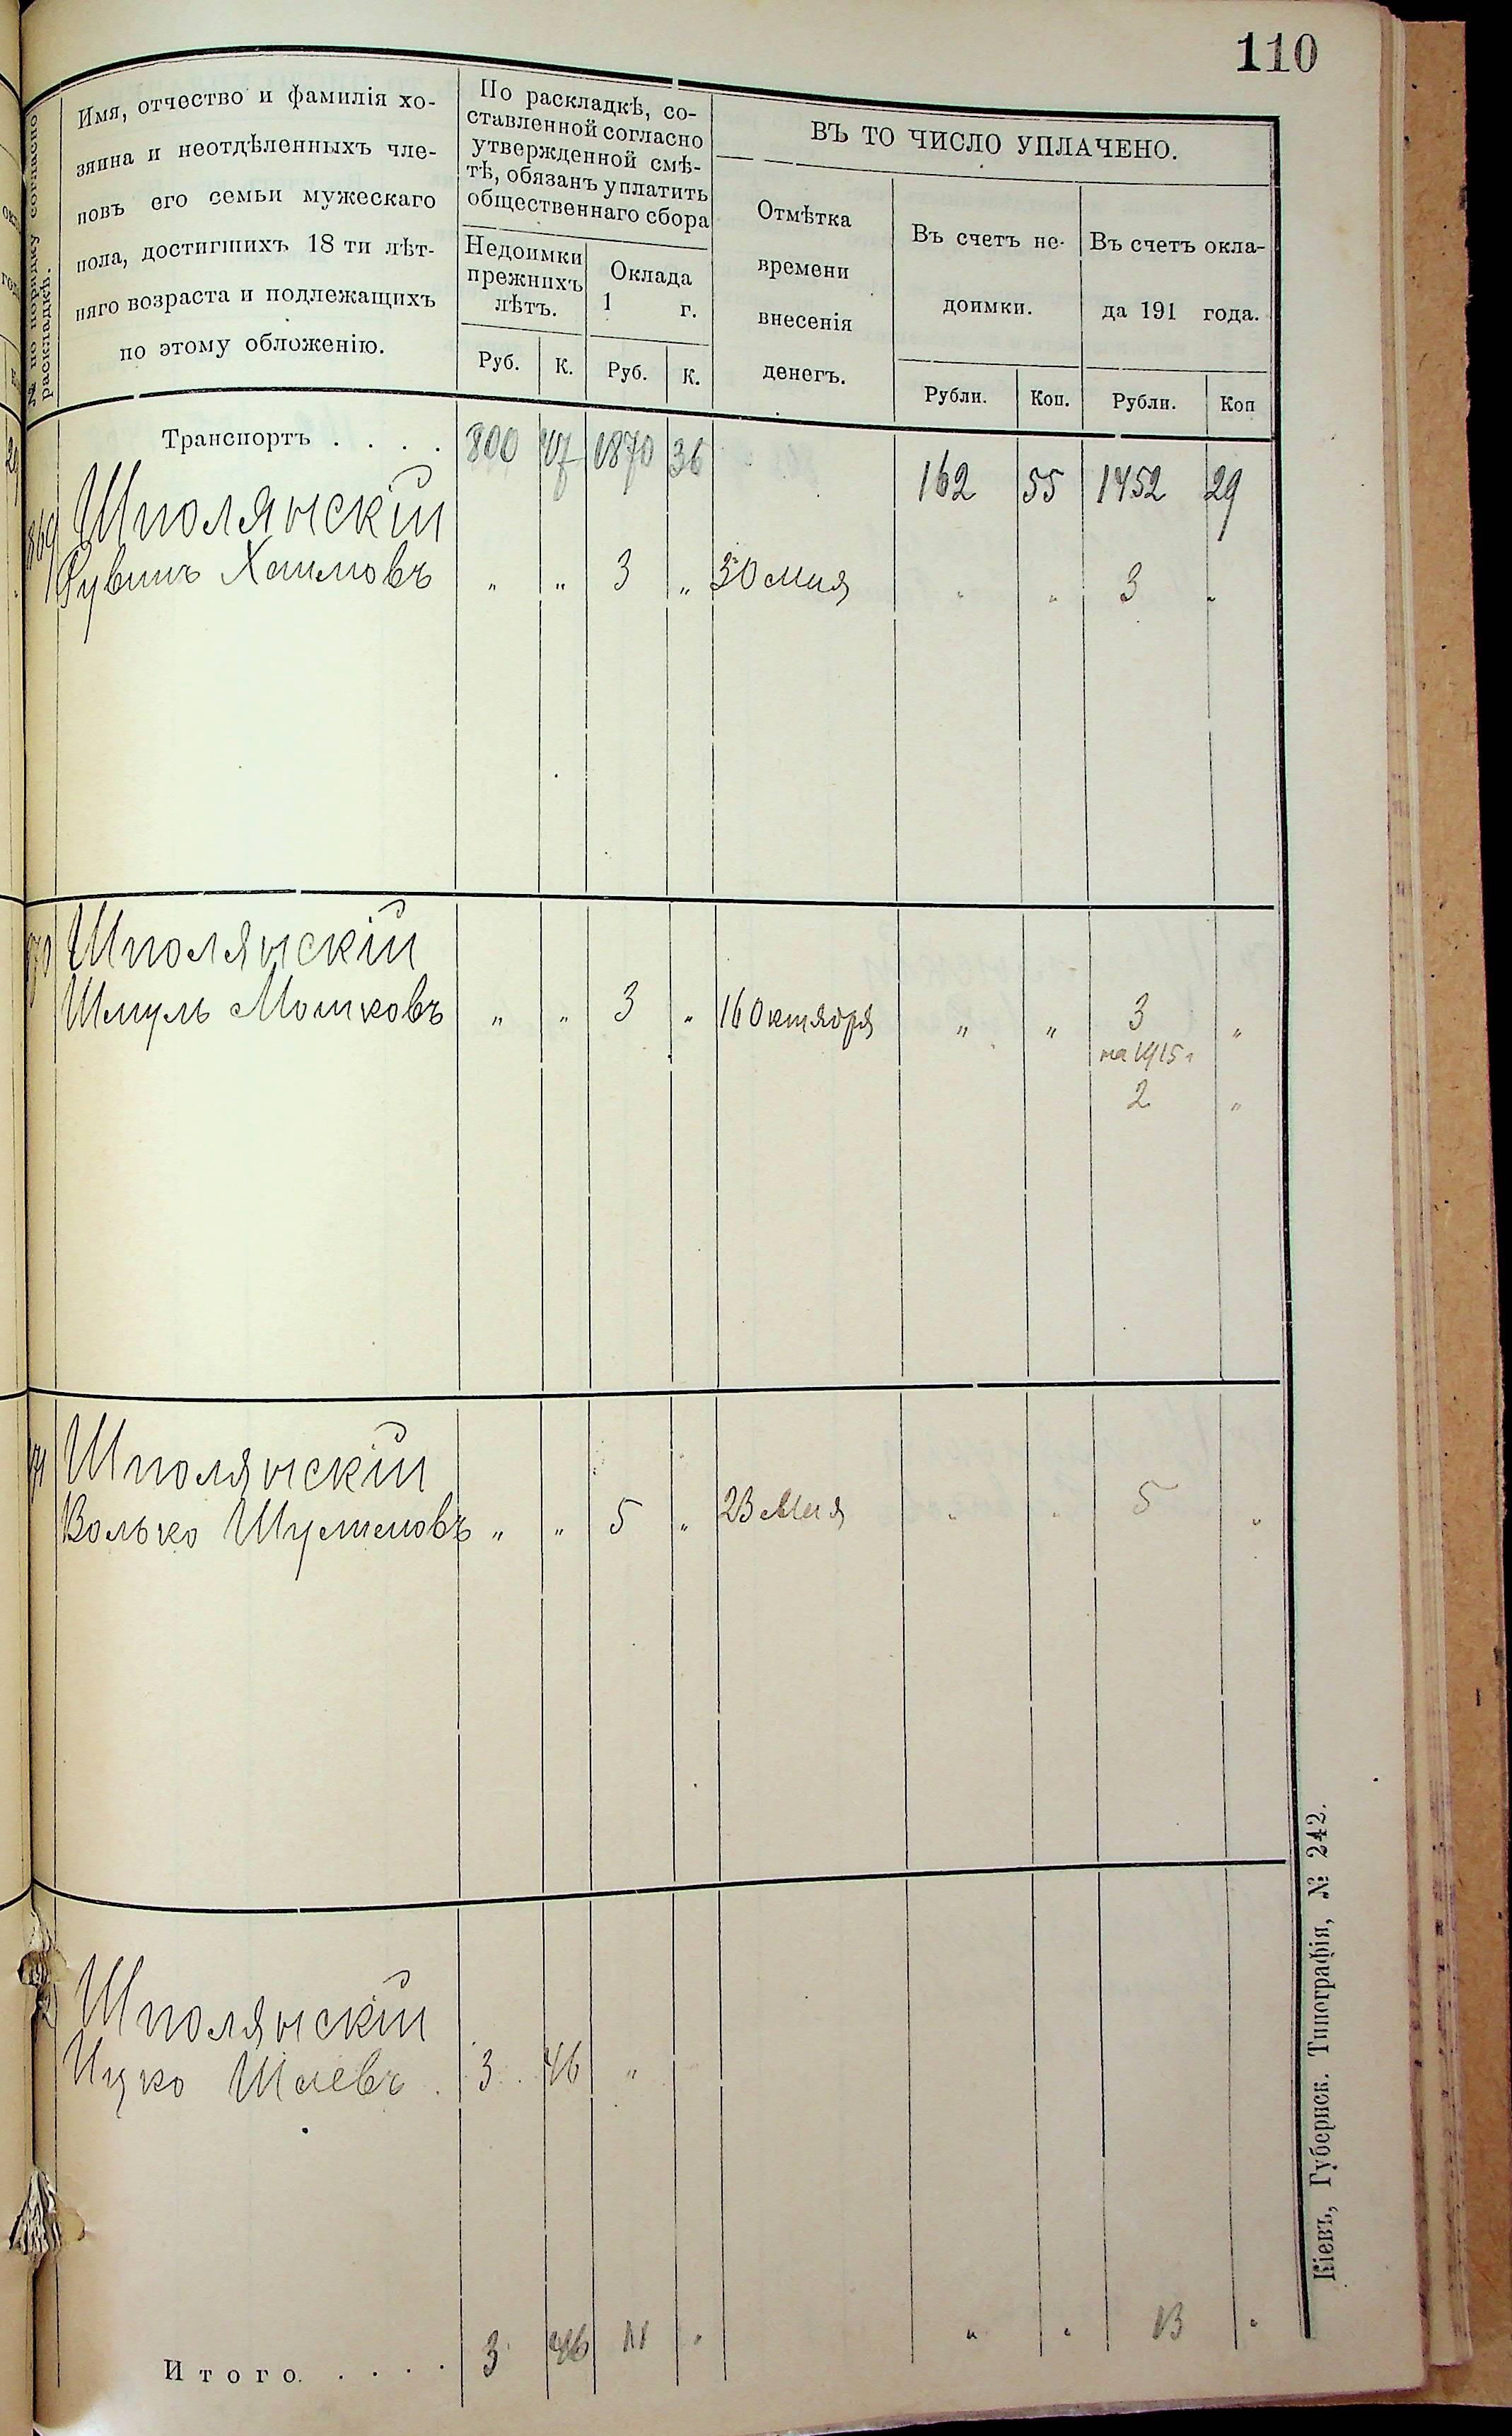 110
№ по порядку согласно
раскладкѣ.
Имя, отчество и фамилія хо-
зяина и неотдѣленныхъ чле-
новъ его семьи мужескаго
пола, достигшихъ 18 ти лѣт-
няго возраста и подлежащихъ
по этому обложенію.
По раскладкѣ, со-
ставленной согласно
утвержденной смѣ-
тѣ, обязанъ уплатить
общественнаго сбора
Недоимки
прежнихъ
лѣтъ.
Оклада
1 г.
Руб. К. Руб. К.
ВЪ ТО ЧИСЛО УПЛАЧЕНО.
Отмѣтка
времени
внесенія
денегъ.
Въ счетъ не-
доимки.
Рубли. Коп.
Въ счетъ окла-
да 191 года.
Рубли. Коп
Транспортъ . . . . 800 47 1870 36 162 55 1452 29
869 Шполянскій
Рувинъ Хаимовъ " " 3 " 30 мая " " 3 "
870 Шполянскій
Шмуль Мошковъ " " 3 " 16 октября " " 3 "
на 1915 г
2 "
71 Шполянскій
Волько " " 5 " 23 мая " " 5 "
Шполянскій
Ицко Шаевъ 3 46 "
Итого. . . . . 3 46 11 " " " 13 "
Кіевъ, Губернск. Типографія, № 242.